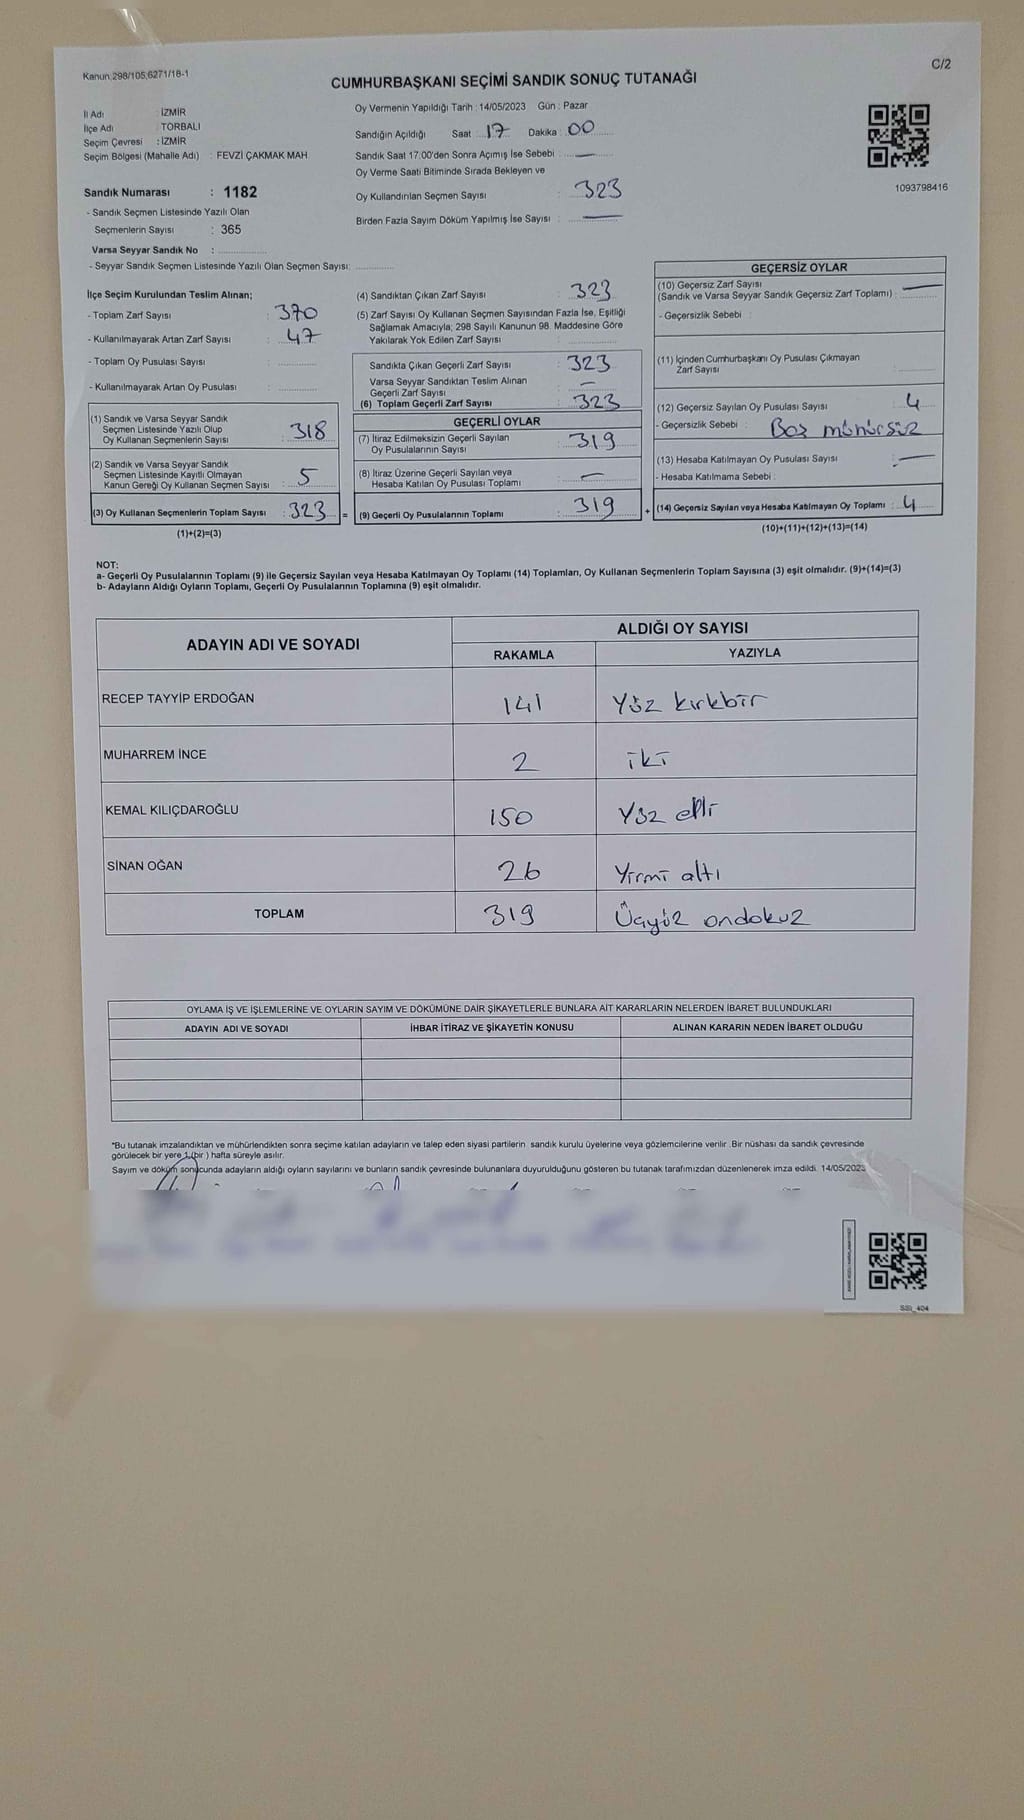 Kanun 298/105;6271/18-1
C/2
CUMHURBAŞKANI SEÇİMİ SANDIK SONUÇ TUTANAĞI
İl Adı : İZMİR
İlçe Adı : TORBALI
Seçim Çevresi : İZMİR
Seçim Bölgesi (Mahalle Adı) : FEVZİ ÇAKMAK MAH
Sandık Numarası : 1182
- Sandık Seçmen Listesinde Yazılı Olan
Seçmenlerin Sayısı : 365
Varsa Seyyar Sandık No :
- Seyyar Sandık Seçmen Listesinde Yazılı Olan Seçmen Sayısı:
Oy Vermenin Yapıldığı Tarih : 14/05/2023 Gün : Pazar
Sandığın Açıldığı Saat : 17 Dakika : 00
Sandık Saat 17:00'den Sonra Açılmış İse Sebebi : —
Oy Verme Saati Bitiminde Sırada Bekleyen ve
Oy Kullandırılan Seçmen Sayısı : 323
Birden Fazla Sayım Döküm Yapılmış İse Sayısı : —
1093798416
İlçe Seçim Kurulundan Teslim Alınan;
- Toplam Zarf Sayısı : 370
- Kullanılmayarak Artan Zarf Sayısı : 47
- Toplam Oy Pusulası Sayısı :
- Kullanılmayarak Artan Oy Pusulası :
(1) Sandık ve Varsa Seyyar Sandık
Seçmen Listesinde Yazılı Olup
Oy Kullanan Seçmenlerin Sayısı : 318
(2) Sandık ve Varsa Seyyar Sandık
Seçmen Listesinde Kayıtlı Olmayan
Kanun Gereği Oy Kullanan Seçmen Sayısı : 5
(3) Oy Kullanan Seçmenlerin Toplam Sayısı : 323 =
(1)+(2)=(3)
(4) Sandıktan Çıkan Zarf Sayısı : 323
(5) Zarf Sayısı Oy Kullanan Seçmen Sayısından Fazla İse, Eşitliği
Sağlamak Amacıyla; 298 Sayılı Kanunun 98. Maddesine Göre
Yakılarak Yok Edilen Zarf Sayısı :
Sandıkta Çıkan Geçerli Zarf Sayısı : 323
Varsa Seyyar Sandıktan Teslim Alınan
Geçerli Zarf Sayısı : —
(6) Toplam Geçerli Zarf Sayısı : 323
GEÇERLİ OYLAR
(7) İtiraz Edilmeksizin Geçerli Sayılan
Oy Pusulalarının Sayısı : 319
(8) İtiraz Üzerine Geçerli Sayılan veya
Hesaba Katılan Oy Pusulası Toplamı : —
(9) Geçerli Oy Pusulalarının Toplamı : 319 +
GEÇERSİZ OYLAR
(10) Geçersiz Zarf Sayısı
(Sandık ve Varsa Seyyar Sandık Geçersiz Zarf Toplamı) : —
- Geçersizlik Sebebi :
(11) İçinden Cumhurbaşkanı Oy Pusulası Çıkmayan
Zarf Sayısı :
(12) Geçersiz Sayılan Oy Pusulası Sayısı : 4
- Geçersizlik Sebebi : Boş mühürsüz
(13) Hesaba Katılmayan Oy Pusulası Sayısı : —
- Hesaba Katılmama Sebebi :
(14) Geçersiz Sayılan veya Hesaba Katılmayan Oy Toplamı : 4
(10)+(11)+(12)+(13)=(14)
NOT:
a- Geçerli Oy Pusulalarının Toplamı (9) ile Geçersiz Sayılan veya Hesaba Katılmayan Oy Toplamı (14) Toplamları, Oy Kullanan Seçmenlerin Toplam Sayısına (3) eşit olmalıdır. (9)+(14)=(3)
b- Adayların Aldığı Oyların Toplamı, Geçerli Oy Pusulalarının Toplamına (9) eşit olmalıdır.
ADAYIN ADI VE SOYADI
ALDIĞI OY SAYISI
RAKAMLA YAZIYLA
RECEP TAYYİP ERDOĞAN 141 Yüz kırkbir
MUHARREM İNCE 2 iki
KEMAL KILIÇDAROĞLU 150 Yüz elli
SİNAN OĞAN 26 Yirmi altı
TOPLAM 319 Üçyüz ondokuz
OYLAMA İŞ VE İŞLEMLERİNE VE OYLARIN SAYIM VE DÖKÜMÜNE DAİR ŞİKAYETLERLE BUNLARA AİT KARARLARIN NELERDEN İBARET BULUNDUKLARI
ADAYIN ADI VE SOYADI İHBAR İTİRAZ VE ŞİKAYETİN KONUSU ALINAN KARARIN NEDEN İBARET OLDUĞU
*Bu tutanak imzalandıktan ve mühürlendikten sonra seçime katılan adayların ve talep eden siyasi partilerin sandık kurulu üyelerine veya gözlemcilerine verilir. Bir nüshası da sandık çevresinde
görülecek bir yere 1 (bir) hafta süreyle asılır.
Sayım ve döküm sonucunda adayların aldığı oyların sayılarını ve bunların sandık çevresinde bulunanlara duyurulduğunu gösteren bu tutanak tarafımızdan düzenlenerek imza edildi. 14/05/2023
SSI_404